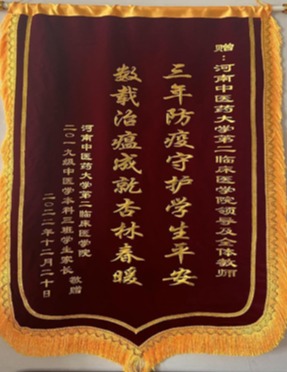 赠：河南中医药大学第二临床医学院领导及全体教师
三年防疫守护学生平安
数载治瘟成就杏林春暖
河南中医药大学第二临床医学院
二〇一九级中医学本科三班学生家长 敬赠
二〇二二年十二月二十日